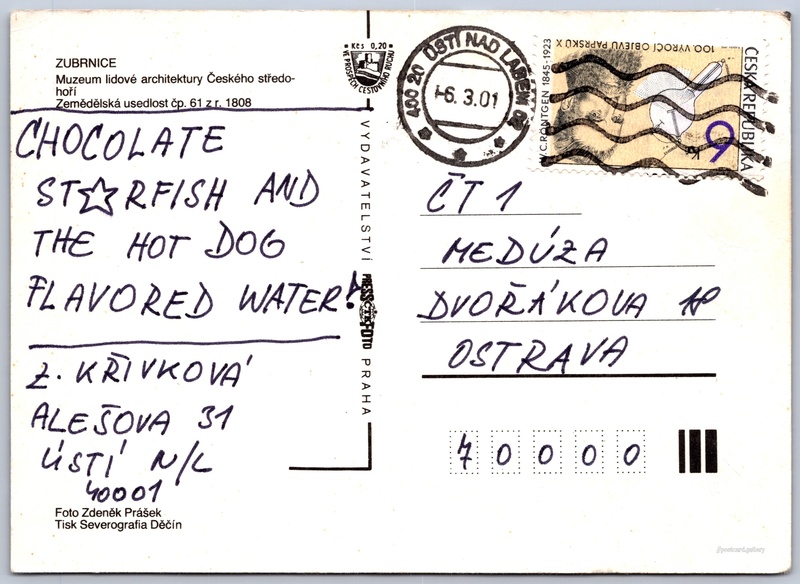 ZUBRNICE
Muzeum lidové architektury Českého středo-
hoří
Zemědělská usedlost čp. 61 z r. 1808
CHOCOLATE
ST☆RFISH AND
THE HOT DOG
FLAVORED WATER!
Z. KŘIVKOVÁ
ALEŠOVA 31
ÚSTÍ N/L
40001
Foto Zdeněk Prášek
Tisk Severografia Děčín
Kčs 0,20
VE PROSPĚCH CESTOVNÍHO RUCHU
VYDAVATELSTVÍ
PRESSFOTO
PRAHA
400 20 ÚSTÍ NAD LABEM
-6.3.01
W.C.RÖNTGEN 1845-1923
100. VÝROČÍ OBJEVU PAPRSKŮ X
ČESKÁ REPUBLIKA
6 Kč
ČT 1
MEDÚZA
DVOŘÁKOVA 18
OSTRAVA
70000